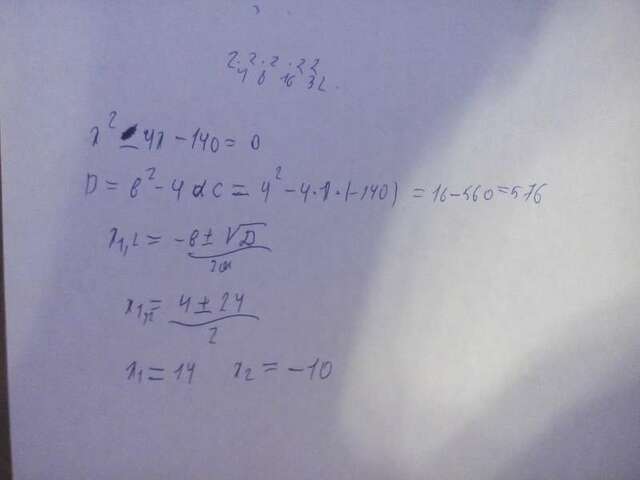 2·2·2·22
4 8 16 32.
x² - 4x - 140 = 0
D = b² - 4ac = 4² - 4·1·(-140) = 16 - 560 = 576
x₁,₂ = -b ± √D / 2a
x₁,₂ = 4 ± 24 / 2
x₁ = 14 x₂ = -10